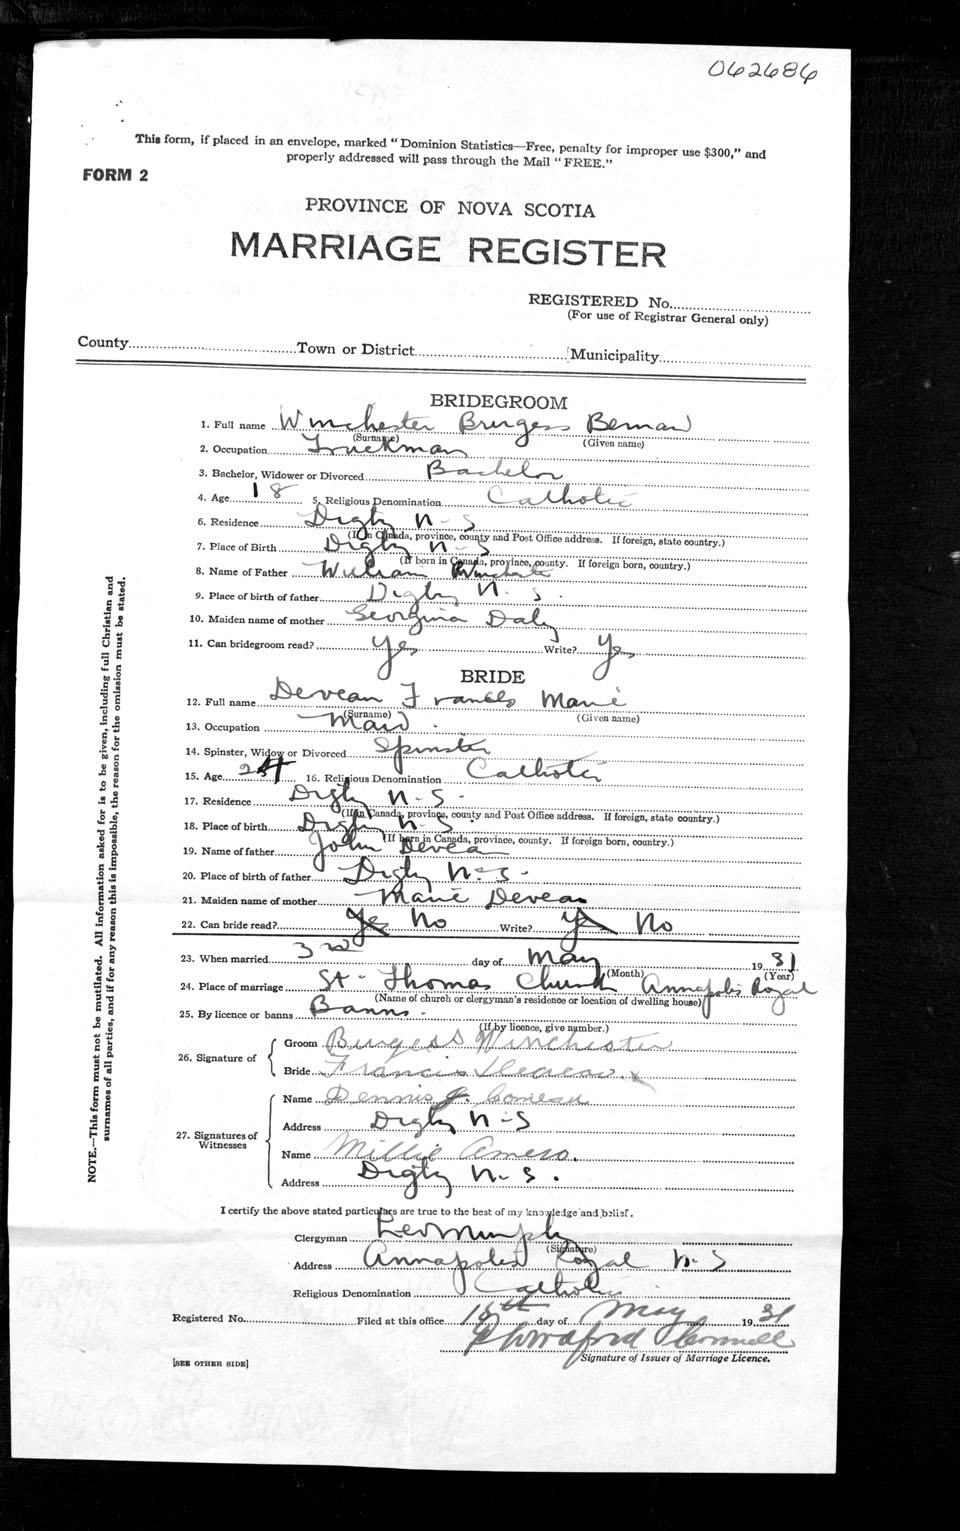 062686
This form, if placed in an envelope, marked "Dominion Statistics—Free, penalty for improper use $300," and
properly addressed will pass through the Mail "FREE."
FORM 2
PROVINCE OF NOVA SCOTIA
MARRIAGE REGISTER
REGISTERED No.
(For use of Registrar General only)
County Town or District Municipality
BRIDEGROOM
1. Full name Winchester Burgess Bernard
(Surname) (Given name)
2. Occupation Truckman
3. Bachelor, Widower or Divorced Bachelor
4. Age 18 5. Religious Denomination Catholic
6. Residence Digby N-S
(If in Canada, province, county and Post Office address. If foreign, state country.)
7. Place of Birth Digby N-S
(If born in Canada, province, county. If foreign born, country.)
8. Name of Father William Winchester
9. Place of birth of father Digby N.S.
10. Maiden name of mother Georgina Daly
11. Can bridegroom read? Yes Write? Yes
BRIDE
12. Full name Devean Francis Marie
(Surname) (Given name)
13. Occupation Maid.
14. Spinster, Widow or Divorced Spinster
15. Age 16. Religious Denomination Catholic
17. Residence Digby N-S.
(If in Canada, province, county and Post Office address. If foreign, state country.)
18. Place of birth Digby N-S.
(If born in Canada, province, county. If foreign born, country.)
19. Name of father John Devean
20. Place of birth of father Digby N-S.
21. Maiden name of mother Marie Devean
22. Can bride read? Yes No Write? Ye No
23. When married 3rd day of May 1931
(Month) (Year)
24. Place of marriage St. Thomas Church Annapolis Royal
(Name of church or clergyman's residence or location of dwelling house)
25. By licence or banns Banns.
(If by licence, give number.)
26. Signature of
Groom Burgess Winchester
Bride Francis Devean x
27. Signatures of Witnesses
Name Dennis J. Comeau
Address Digby N-S
Name Millie Amero.
Address Digby N-S.
I certify the above stated particulars are true to the best of my knowledge and belief.
Clergyman Leo Murphy
(Signature)
Address Annapolis Royal N-S
Religious Denomination Catholic
Registered No. Filed at this office 15th day of May 1931
Signature of Issuer of Marriage Licence.
[SEE OTHER SIDE]
NOTE.—This form must not be mutilated. All information asked for is to be given, including full Christian and
surnames of all parties, and if for any reason this is impossible, the reason for the omission must be stated.